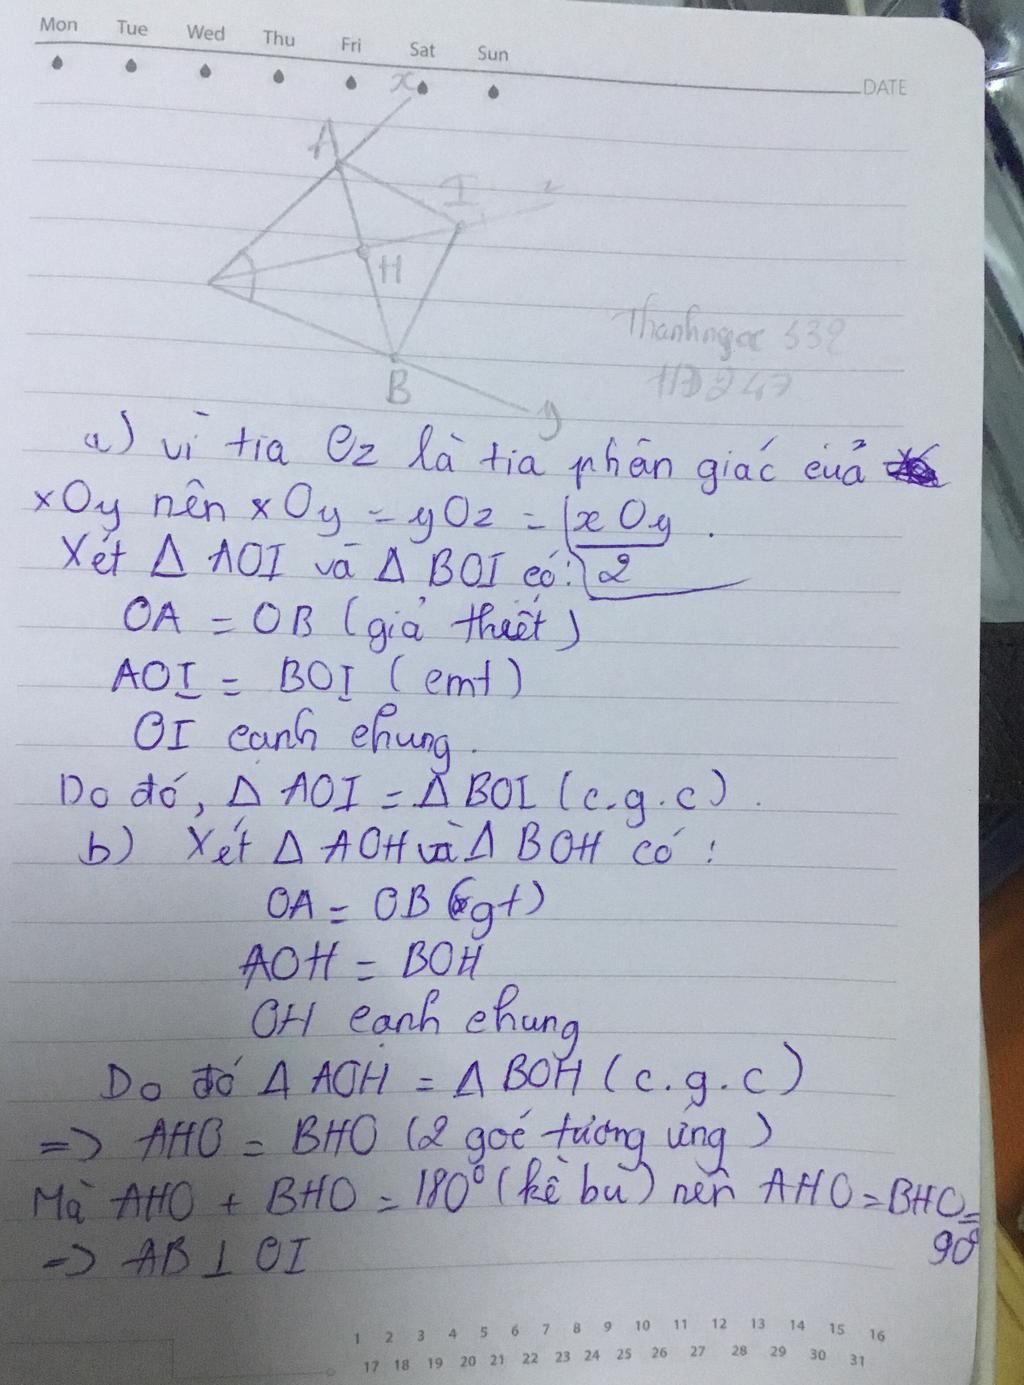 Mon Tue Wed Thu Fri Sat Sun
DATE
x
A
I
z
H
B
y
Thanhngoc 532
HD247
a) vì tia Oz là tia phân giác của
xOy nên xOy = yOz = xOy / 2 .
Xét Δ AOI và Δ BOI có:
OA = OB (giả thiết)
AOI = BOI (cmt)
OI cạnh chung.
Do đó, Δ AOI = Δ BOI (c.g.c).
b) Xét Δ AOH và Δ BOH có :
OA = OB (gt)
AOH = BOH
OH cạnh chung
Do đó Δ AOH = Δ BOH (c.g.c)
=> AHO = BHO (2 góc tương ứng)
Mà AHO + BHO = 180° (kề bù) nên AHO = BHO =
90°
=> AB ⊥ OI
1 2 3 4 5 6 7 8 9 10 11 12 13 14 15 16
17 18 19 20 21 22 23 24 25 26 27 28 29 30 31